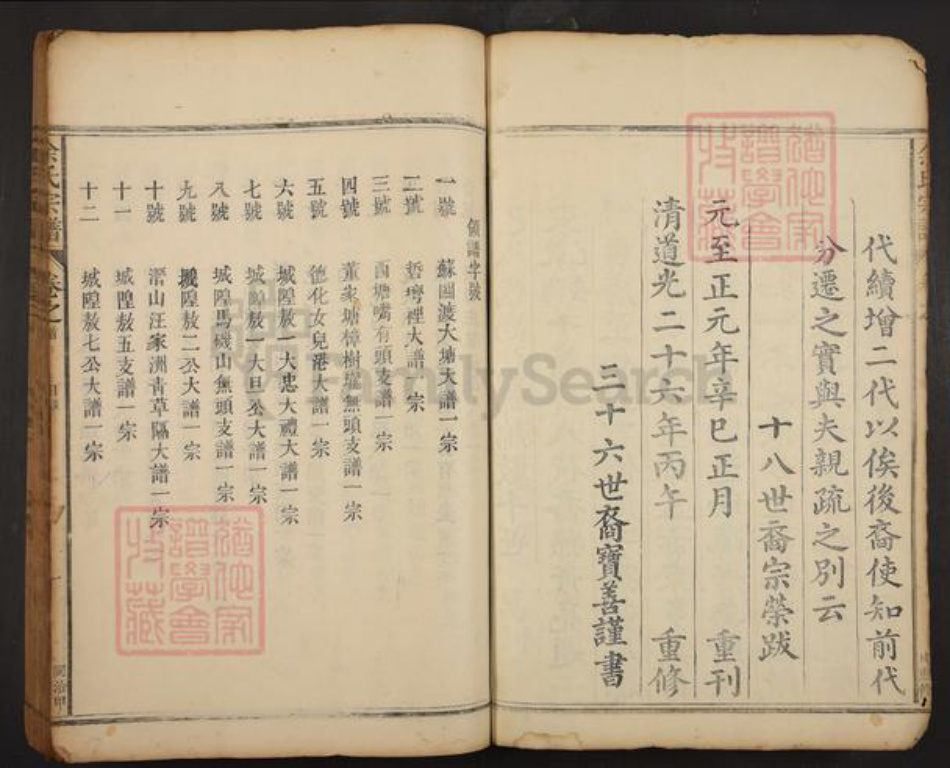 代續增二代以俟後裔使知前代
分遷之實與夫親疏之別云
十八世裔宗榮跋
元至正元年辛巳正月 重刊
清道光二十六年丙午 重修
三十六世裔寶善謹書
領譜字號
一號 蘇園渡大塘大譜一宗
二號 哲壪裡大譜一宗
三號 西塘嘴有頭支譜一宗
四號 董家塘樟樹壠無頭支譜一宗
五號 德化女兒港大譜一宗
六號 城隍敖一大忠大禮大譜一宗
七號 城隍敖一大旦公大譜一宗
八號 城隍馬磯山無頭支譜一宗
九號 城隍敖二公大譜一宗
十號 潛山汪家洲青草隔大譜一宗
十一 城隍敖五支譜一宗
十二 城隍敖七公大譜一宗
余氏宗譜 卷之首
同治甲
FamilySearch